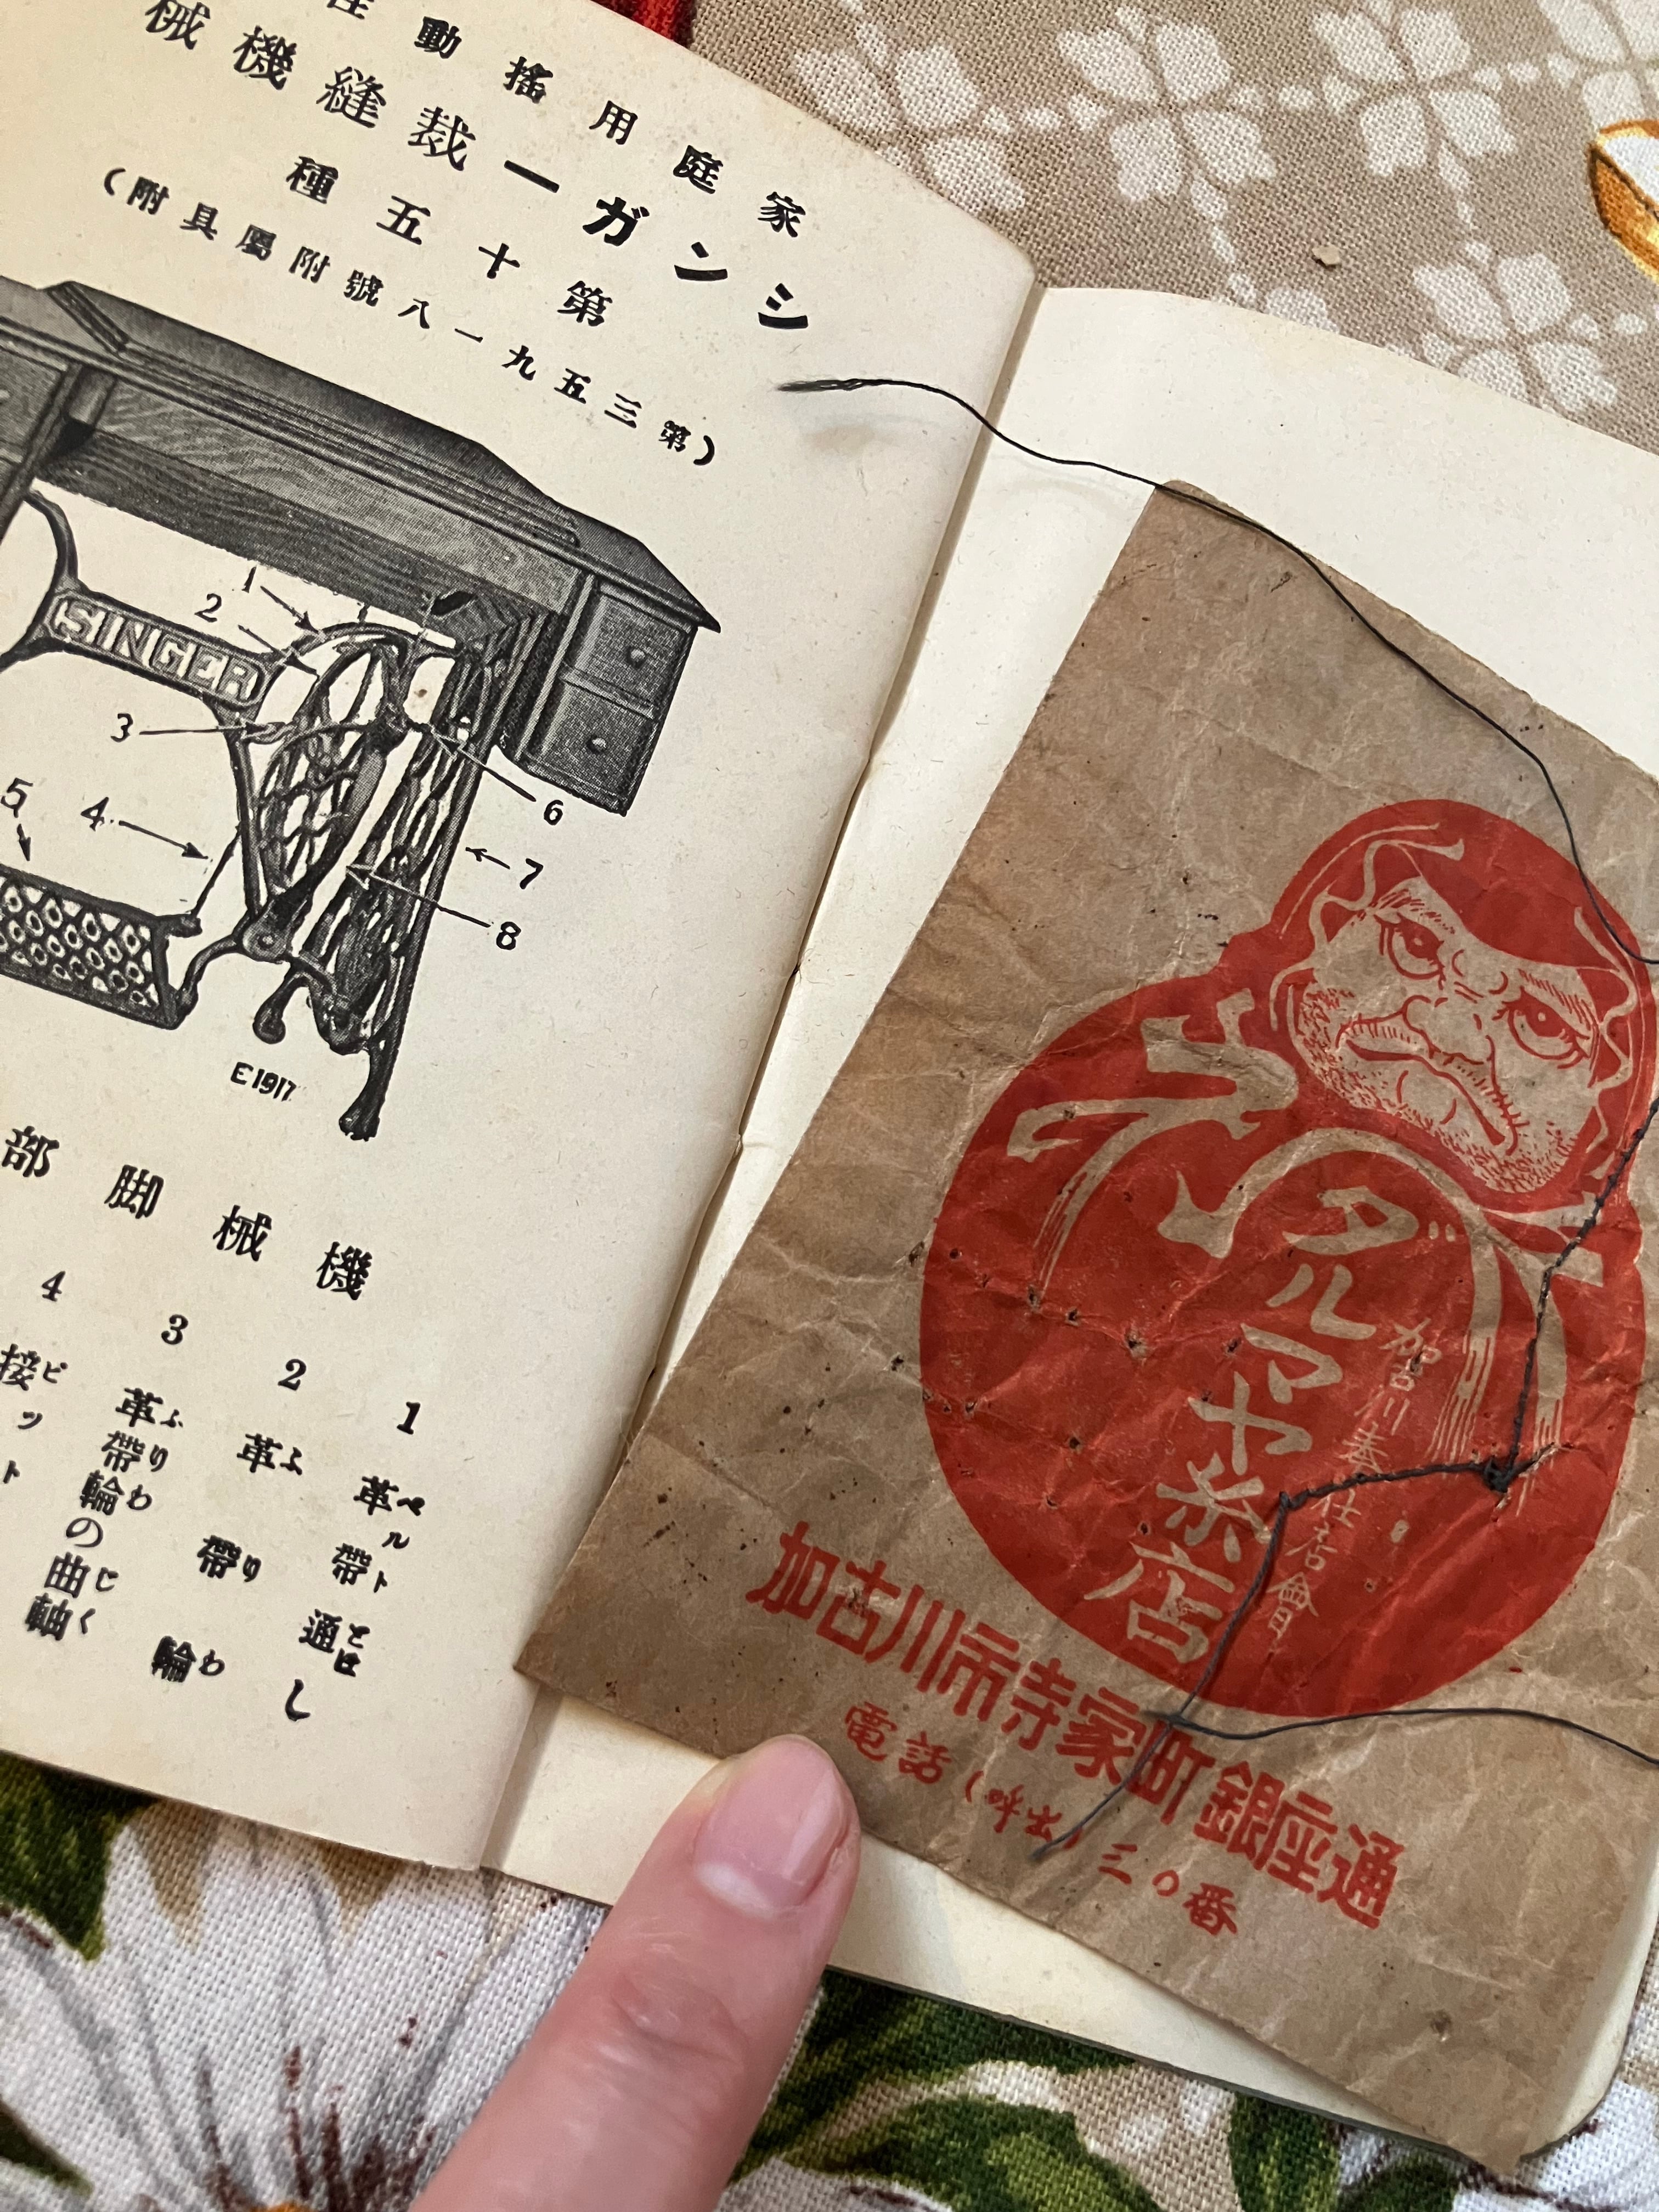 家庭用搖動
シンガー裁縫機械
第十五種
(第三五九一八號附屬具附)
SINGER
1
2
3
4
5
6
7
8
E1917
機械脚部
1 革帶通し
ベルトとほし
2 革帶輪
ふりわ
3 革帶輪の曲軸
ふりわじく
4 接
ピット
ダルマヤ糸店
加古川
店會
加古川市寺家町銀座通
電話(呼出)三〇番